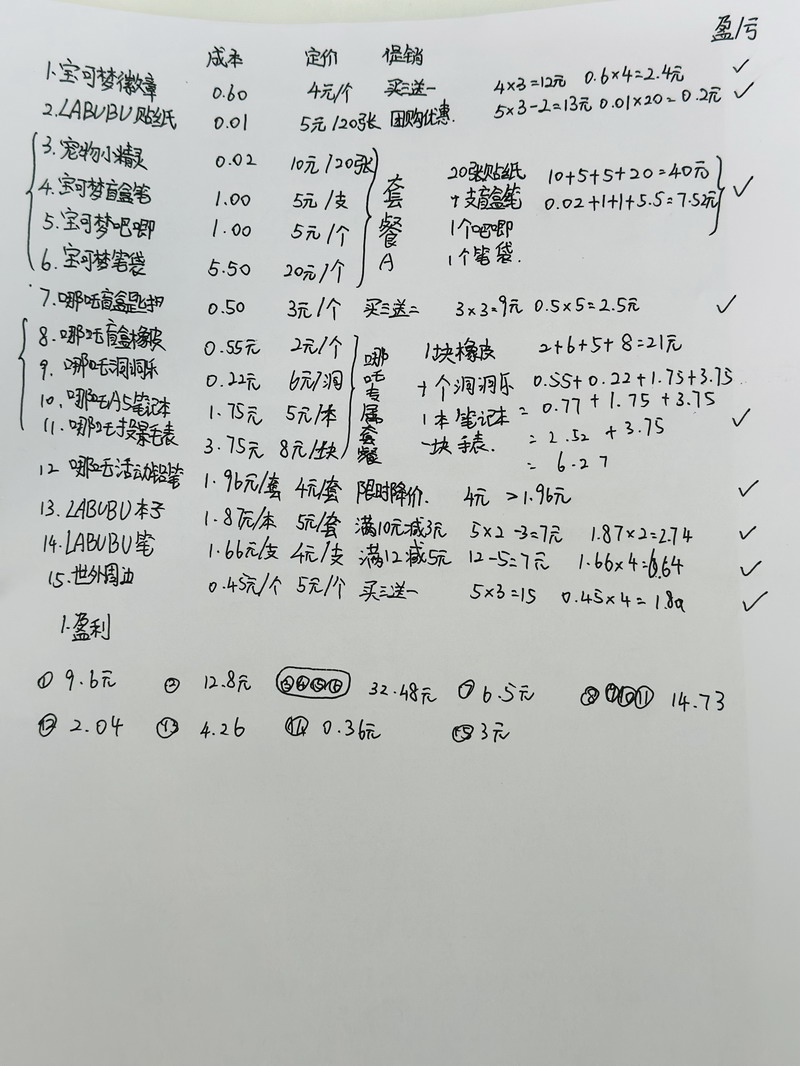 盈/亏
成本 定价 促销
1.宝可梦徽章 0.60 4元/个 买三送一 4×3=12元 0.6×4=2.4元 ✓
2.LABUBU贴纸 0.01 5元/20张 团购优惠. 5×3-2=13元 0.01×20=0.2元 ✓
3.宠物小精灵 0.02 10元/20张 套餐A 20张贴纸 10+5+5+20=40元 ✓
4.宝可梦盲盒笔 1.00 5元/支 +支盲盒笔 0.02+1+1+5.5=7.52元
5.宝可梦吧唧 1.00 5元/个 1个吧唧
6.宝可梦笔袋 5.50 20元/个 1个笔袋.
7.哪吒盲盒匙扣 0.50 3元/个 买三送二 3×3=9元 0.5×5=2.5元 ✓
8.哪吒盲盒橡皮 0.55元 2元/个 哪吒专属套餐 1块橡皮 2+6+5+8=21元
9.哪吒洞洞乐 0.22元 6元/洞 +个洞洞乐 0.55+0.22+1.75+3.75
10.哪吒A5笔记本 1.75元 5元/本 1本笔记本 =0.77+1.75+3.75 ✓
11.哪吒投影手表 3.75元 8元/块 一块手表. =2.52+3.75
=6.27
12 哪吒活动铅笔 1.96元/套 4元/套 限时降价. 4元>1.96元 ✓
13.LABUBU本子 1.87元/本 5元/套 满10元减3元 5×2-3=7元 1.87×2=2.74 ✓
14.LABUBU笔 1.66元/支 4元/支 满12减5元 12-5=7元 1.66×4=6.64 ✓
15.世外周边 0.45元/个 5元/个 买三送一 5×3=15 0.45×4=1.80 ✓
1.盈利
① 9.6元 ② 12.8元 ③④⑤⑥ 32.48元 ⑦ 6.5元 ⑧⑨⑩⑪ 14.73
⑫ 2.04 ⑬ 4.26 ⑭ 0.36元 ⑮ 3元